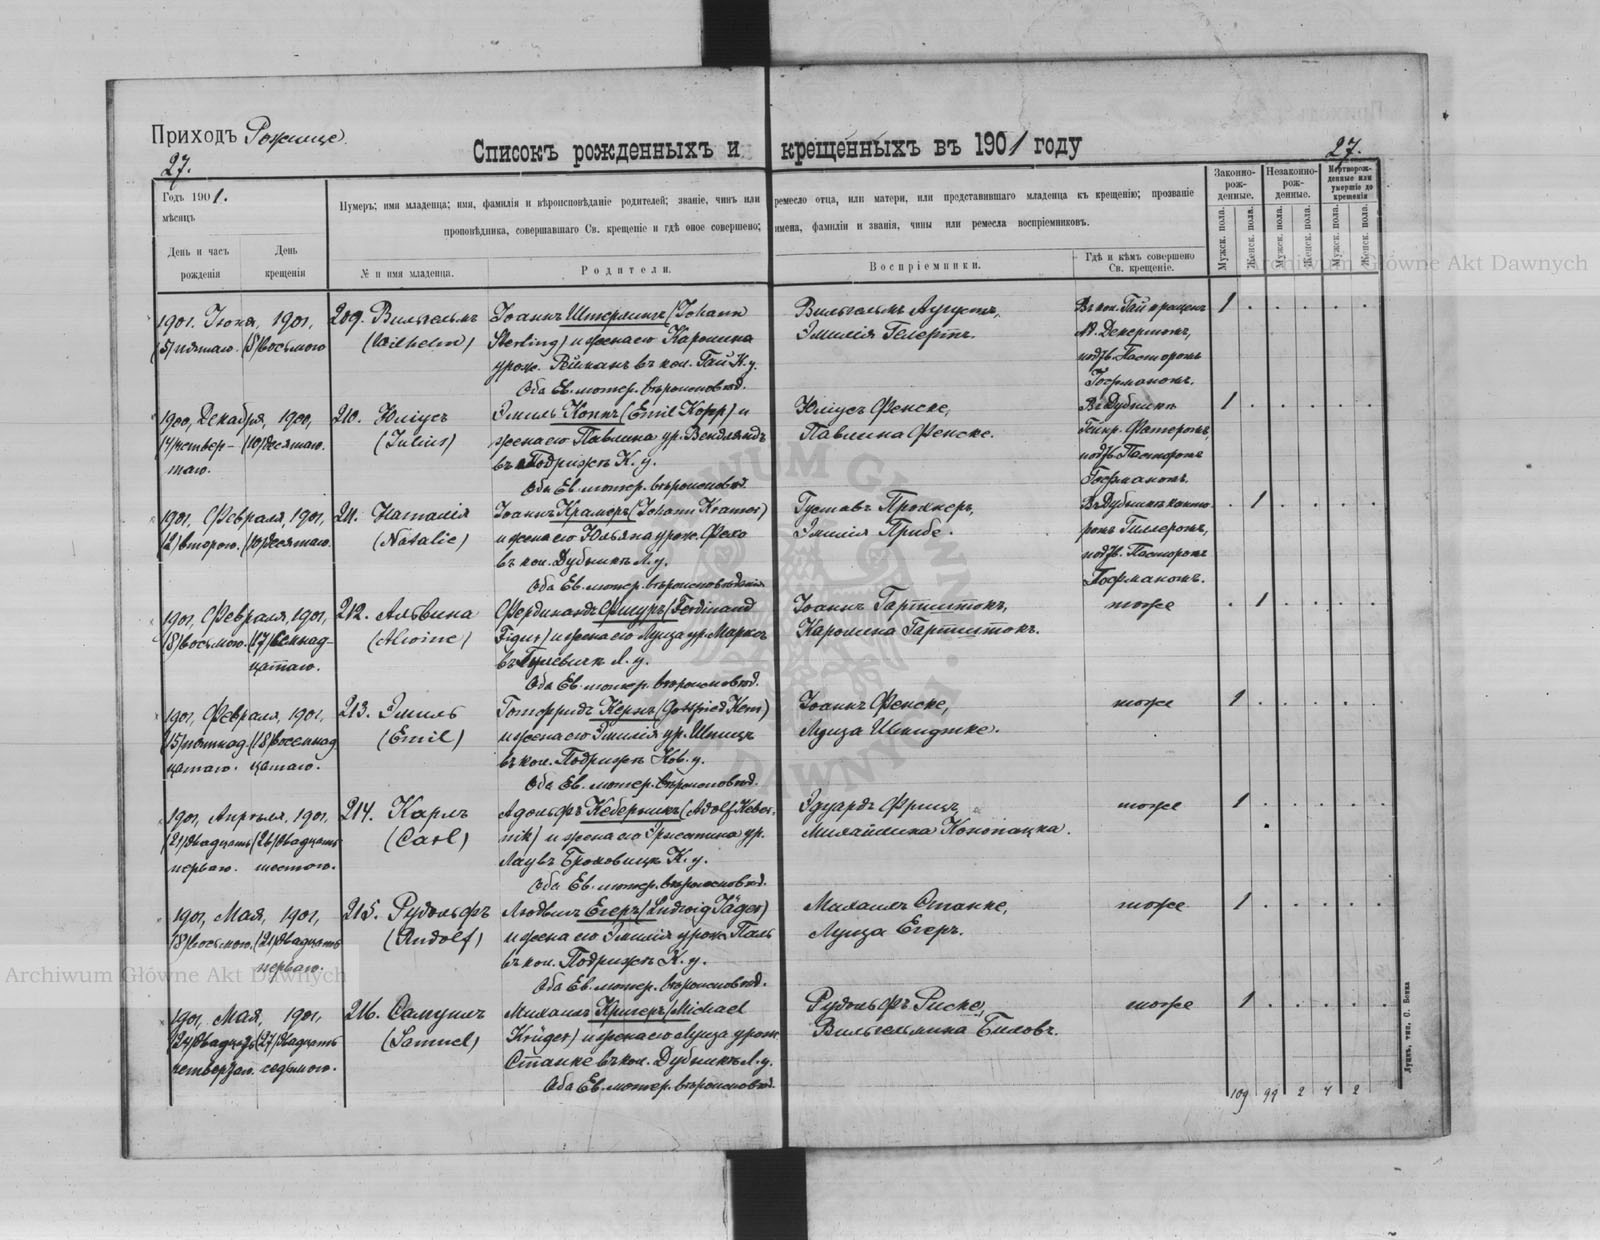 Приходъ Рожище.
27.
Списокъ рожденныхъ и крещенныхъ въ 1901 году
27.
Годъ 1901.
мѣсяцъ
День и часъ рожденія
День крещенія
Нумеръ; имя младенца; имя, фамилія и вѣроисповѣданіе родителей; званіе, чинъ или ремесло отца, или матери, или представившаго младенца къ крещенію; прозваніе
проповѣдника, совершавшаго Св. крещеніе и гдѣ оное совершено; имена, фамиліи и званія, чины или ремесла воспріемниковъ.
№ и имя младенца.
Родители.
Воспріемники.
Гдѣ и кѣмъ совершено Св. крещеніе.
Законно-рож-денные.
Незаконно-рож-денные.
Мертворож-денные или умершіе до крещенія
Мужск. пола.
Женск. пола.
Мужск. пола.
Женск. пола.
Мужск. пола.
Женск. пола.
1901. Іюня, 1901,
(5) пятаго. (8) восьмого
209. Вильгельмъ
(Wilhelm)
Іоаннъ Штерлингъ (Johann
Sterling) и жена его Каролина
урож. въ кол. Гай К. у.
Оба Ев. лютер. вѣроисповѣд.
Вильгельмъ Августъ,
Эмилія Гелертъ.
Въ кол. Гай крещенъ
подтв. Пасторомъ
Гофманомъ.
1
1900, Декабря, 1900,
(4) четвер- (10) десятаго.
таго.
210. Юліусъ
(Julius)
Эмиль Коппъ (Emil Kopp) и
жена его Павлина ур. Вендляндъ
въ Подрижъ К. у.
Оба Ев. лютер. вѣроисповѣд.
Юліусъ Фенске,
Павлина Фенске.
Въ Дубищѣ
подтв. Пасторомъ
Гофманомъ.
1
1901, Февраля, 1901,
(2) второго. (10) десятаго.
211. Наталія
(Natalie)
Іоаннъ Крамеръ (Johann Kramer)
и жена его Юльяна урож.
въ кол. Дубищѣ Л. у.
Оба Ев. лютер. вѣроисповѣданія
Густавъ
Эмилія Прибе.
Въ Дубищѣ канто
ромъ Гиллеромъ,
подтв. Пасторомъ
Гофманомъ.
1
1901, Февраля, 1901,
(8) восьмого. (17) семнад-
цатаго.
212. Альвина
(Alwine)
Фердинандъ Фигуръ (Ferdinand
Figur) и жена его Луиза ур.
въ Л. у.
Оба Ев. лютер. вѣроисповѣд.
Іоаннъ Гартштокъ,
Каролина Гартштокъ.
тоже
1
1901, Февраля, 1901,
(15) пятнад- (18) восемнад
цатаго. цатаго.
213. Эмиль
(Emil)
Готфридъ Кернъ (Gottfried Kern)
и жена его Эмилія ур. Шпицъ
въ кол. Подрижъ Ков. у.
Оба Ев. лютер. вѣроисповѣд.
Іоаннъ Фенске,
Луиза Шмидтке.
тоже
1
1901, Апрѣля, 1901.
(21) двадцать (26) двадцать
перваго. шестого.
214. Карлъ
(Carl)
Адольфъ Кеберникъ (Adolf Keber-
nik) и жена его Эрнстина ур.
Лау въ К. у.
Оба Ев. лютер. вѣроисповѣд.
Эдуардъ Фрицъ,
Михайлина Конопацка.
тоже
1
1901, Мая, 1901,
(8) восьмого, (21) двадцать
перваго.
215. Рудольфъ
(Rudolf)
Людвигъ Егеръ (Ludwig Jäger)
и жена его Эмилія урож. Паль
въ кол. Подрижъ К. у.
Оба Ев. лютер. вѣроисповѣд.
Михаилъ Станке,
Луиза Егеръ.
тоже
1
1901, Мая, 1901,
(24) двадцать (27) двадцать
четвертаго. седьмого.
216. Самуилъ
(Samuel)
Михаилъ Кригеръ (Michael
Krüger) и жена его Луиза урож.
Станке въ кол. Дубищѣ Л. у.
Оба Ев. лютер. вѣроисповѣд.
Рудольфъ Риске,
Вильгельмина Биловъ.
тоже
1
109 99 2 4 2
Луцкъ, тип. С. Бокка
Archiwum Główne Akt Dawnych
Archiwum Główne Akt Dawnych
ARCHIWUM GŁÓWNE AKT DAWNYCH